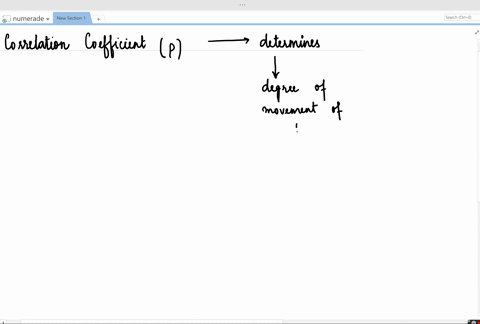 numerade
New Section 1
Search (Ctrl+E)
Correlation Coefficient (P) → determines
↓
degree of
movement of